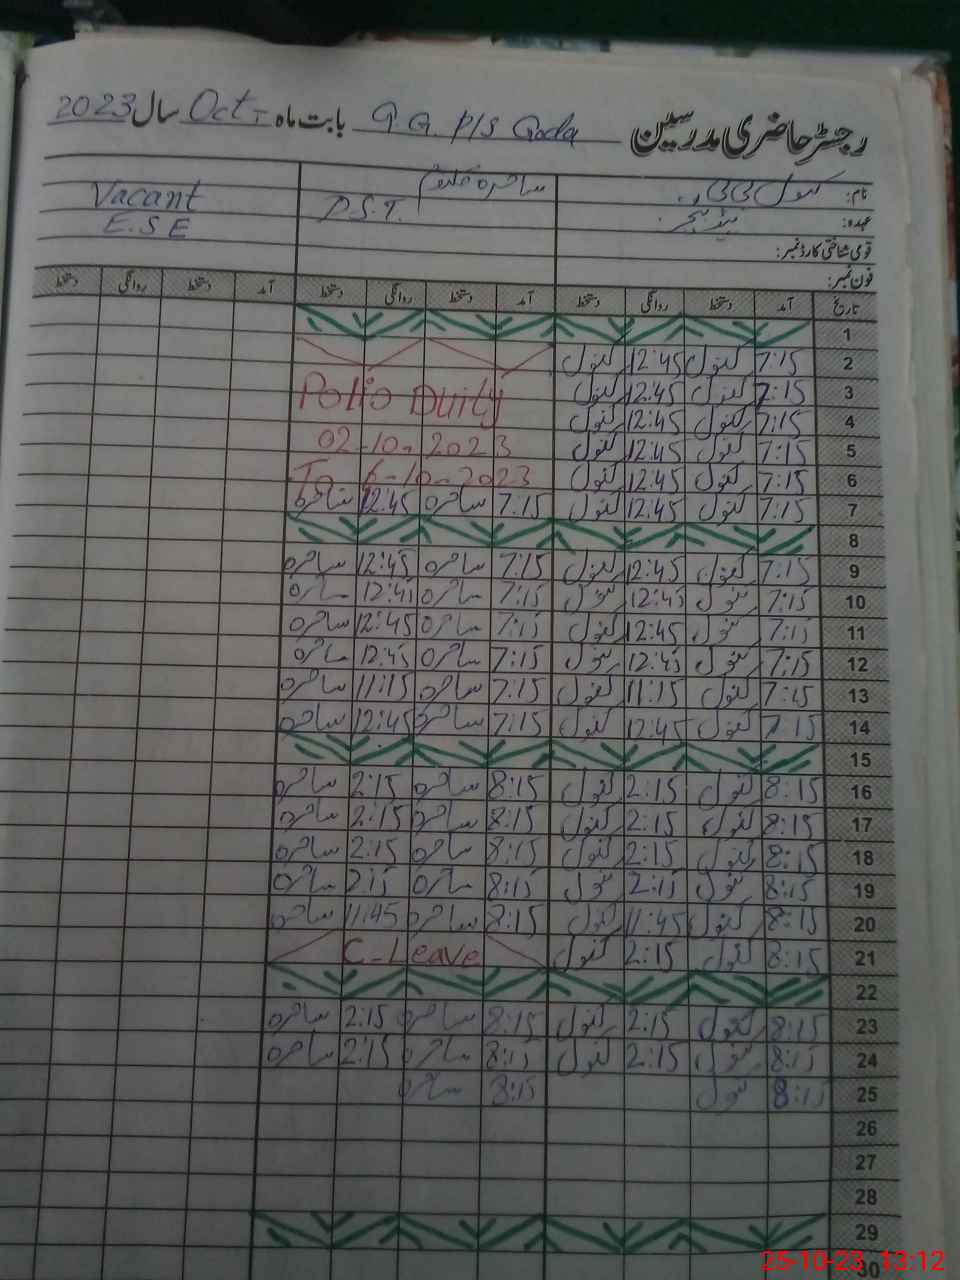 رجسٹر حاضری مدرسین G.G. P/S Goda بابت ماہ Oct- سال 2023
نام: کنول بی بی ساحرہ Vacant
عہدہ: ہیڈ ٹیچر P.S.T. E.S.E
قومی شناختی کارڈ نمبر:
فون نمبر:
تاریخ آمد دستخط روانگی دستخط آمد دستخط روانگی دستخط آمد دستخط روانگی دستخط
1
2 7:15 کنول 12:45 کنول
3 7:15 کنول 12:45 کنول Polio Duity
4 7:15 کنول 12:45 کنول
5 7:15 کنول 12:45 کنول 02-10-2023
6 7:15 کنول 12:45 کنول To 6-10-2023
7 7:15 کنول 12:45 کنول 7:15 ساحرہ 12:45 ساحرہ
8
9 7:15 کنول 12:45 کنول 7:15 ساحرہ 12:45 ساحرہ
10 7:15 کنول 12:45 کنول 7:15 ساحرہ 12:45 ساحرہ
11 7:15 کنول 12:45 کنول 7:15 ساحرہ 12:45 ساحرہ
12 7:15 کنول 12:45 کنول 7:15 ساحرہ 12:45 ساحرہ
13 7:15 کنول 11:15 کنول 7:15 ساحرہ 11:15 ساحرہ
14 7:15 کنول 12:45 کنول 7:15 ساحرہ 12:45 ساحرہ
15
16 8:15 کنول 2:15 کنول 8:15 ساحرہ 2:15 ساحرہ
17 8:15 کنول 2:15 کنول 8:15 ساحرہ 2:15 ساحرہ
18 8:15 کنول 2:15 کنول 8:15 ساحرہ 2:15 ساحرہ
19 8:15 کنول 2:15 کنول 8:15 ساحرہ 2:15 ساحرہ
20 8:15 کنول 11:45 کنول 8:15 ساحرہ 11:45 ساحرہ
21 8:15 کنول 2:15 کنول C-Leave
22
23 8:15 کنول 2:15 کنول 8:15 ساحرہ 2:15 ساحرہ
24 8:15 کنول 2:15 کنول 8:15 ساحرہ 2:15 ساحرہ
25 8:15 کنول 8:15 ساحرہ
26
27
28
29
30
25-10-23 13:12